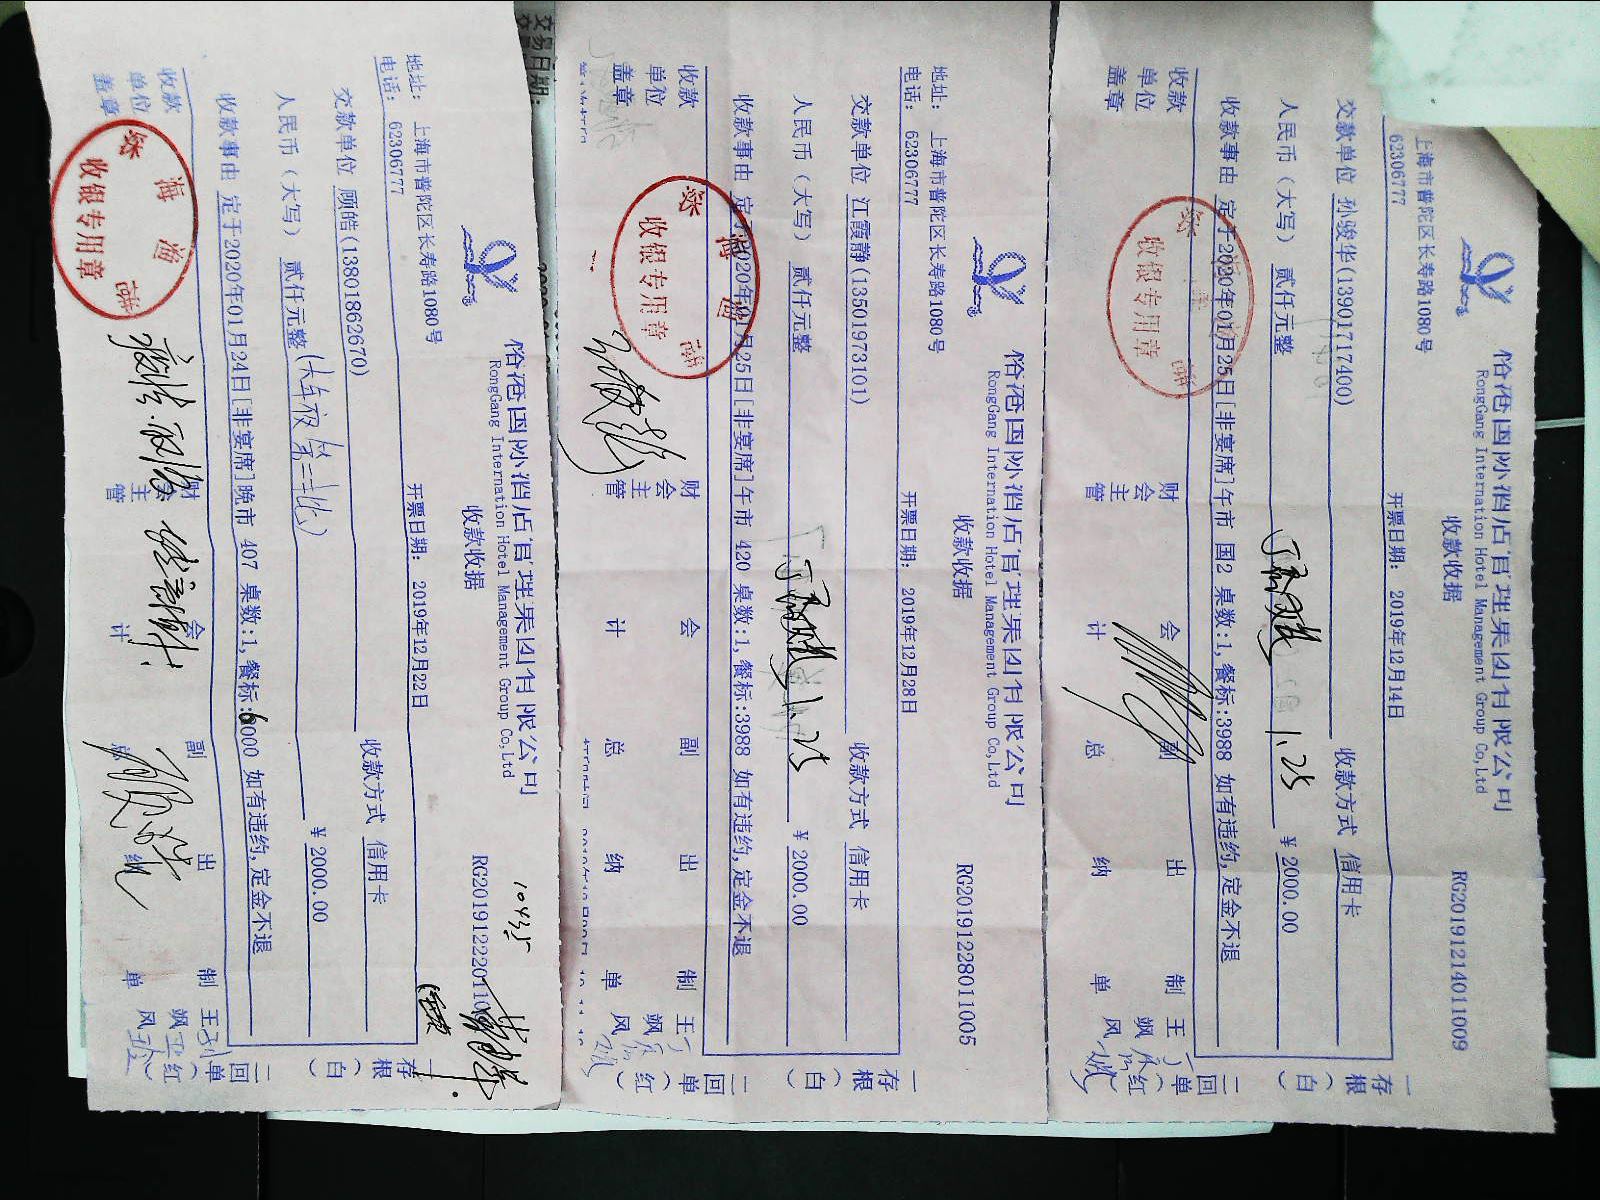 俗港国际酒店管理集团有限公司
RongGang International Hotel Management Group Co,Ltd
收款收据
RG20191214011009
上海市普陀区长寿路1080号
62306777
开票日期: 2019年12月14日
交款单位 孙骏华(13901717400)
收款方式 信用卡
人民币（大写） 贰仟元整
1.25
¥ 2000.00
收款事由 定于2020年01月25日[非宴席]午市 国2 桌数:1,餐标:3988 如有违约,定金不退
收款单位盖章
财会主管
会计
副总
出纳
制单
王飙风
一存根（白）
二回单（红）
收银专用章
俗港国际酒店管理集团有限公司
RongGang International Hotel Management Group Co,Ltd
收款收据
RG20191228011005
地址: 上海市普陀区长寿路1080号
电话: 62306777
开票日期: 2019年12月28日
交款单位 江霞静(13501973101)
收款方式 信用卡
人民币（大写） 贰仟元整
1.25
¥ 2000.00
收款事由 定于2020年01月25日[非宴席]午市 420 桌数:1,餐标:3988 如有违约,定金不退
收款单位盖章
财会主管
会计
副总
出纳
制单
王飙风
一存根（白）
二回单（红）
收银专用章
俗港国际酒店管理集团有限公司
RongGang International Hotel Management Group Co,Ltd
收款收据
地址: 上海市普陀区长寿路1080号
电话: 62306777
开票日期: 2019年12月22日
交款单位 顾皓(13801862670)
收款方式 信用卡
人民币（大写） 贰仟元整(大年夜第二批)
¥ 2000.00
收款事由 定于2020年01月24日[非宴席]晚市 407 桌数:1,餐标:6000 如有违约,定金不退
收款单位盖章
财会主管
会计
副总
出纳
制单
王飙风
一存根（白）
二回单（红）
收银专用章
交易日期: